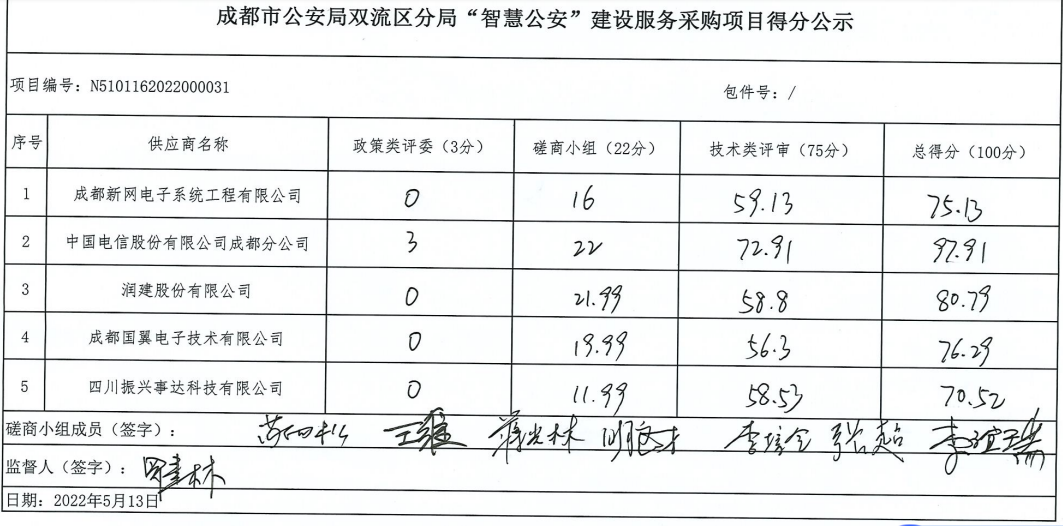 成都市公安局双流区分局“智慧公安”建设服务采购项目得分公示
项目编号：N5101162022000031 包件号：/
序号 供应商名称 政策类评委（3分） 磋商小组（22分） 技术类评审（75分） 总得分（100分）
1 成都新网电子系统工程有限公司 0 16 59.13 75.13
2 中国电信股份有限公司成都分公司 3 22 72.91 97.91
3 润建股份有限公司 0 21.99 58.8 80.79
4 成都国翼电子技术有限公司 0 19.99 56.3 76.29
5 四川振兴事达科技有限公司 0 11.99 58.53 70.52
磋商小组成员（签字）：
监督人（签字）：
日期：2022年5月13日